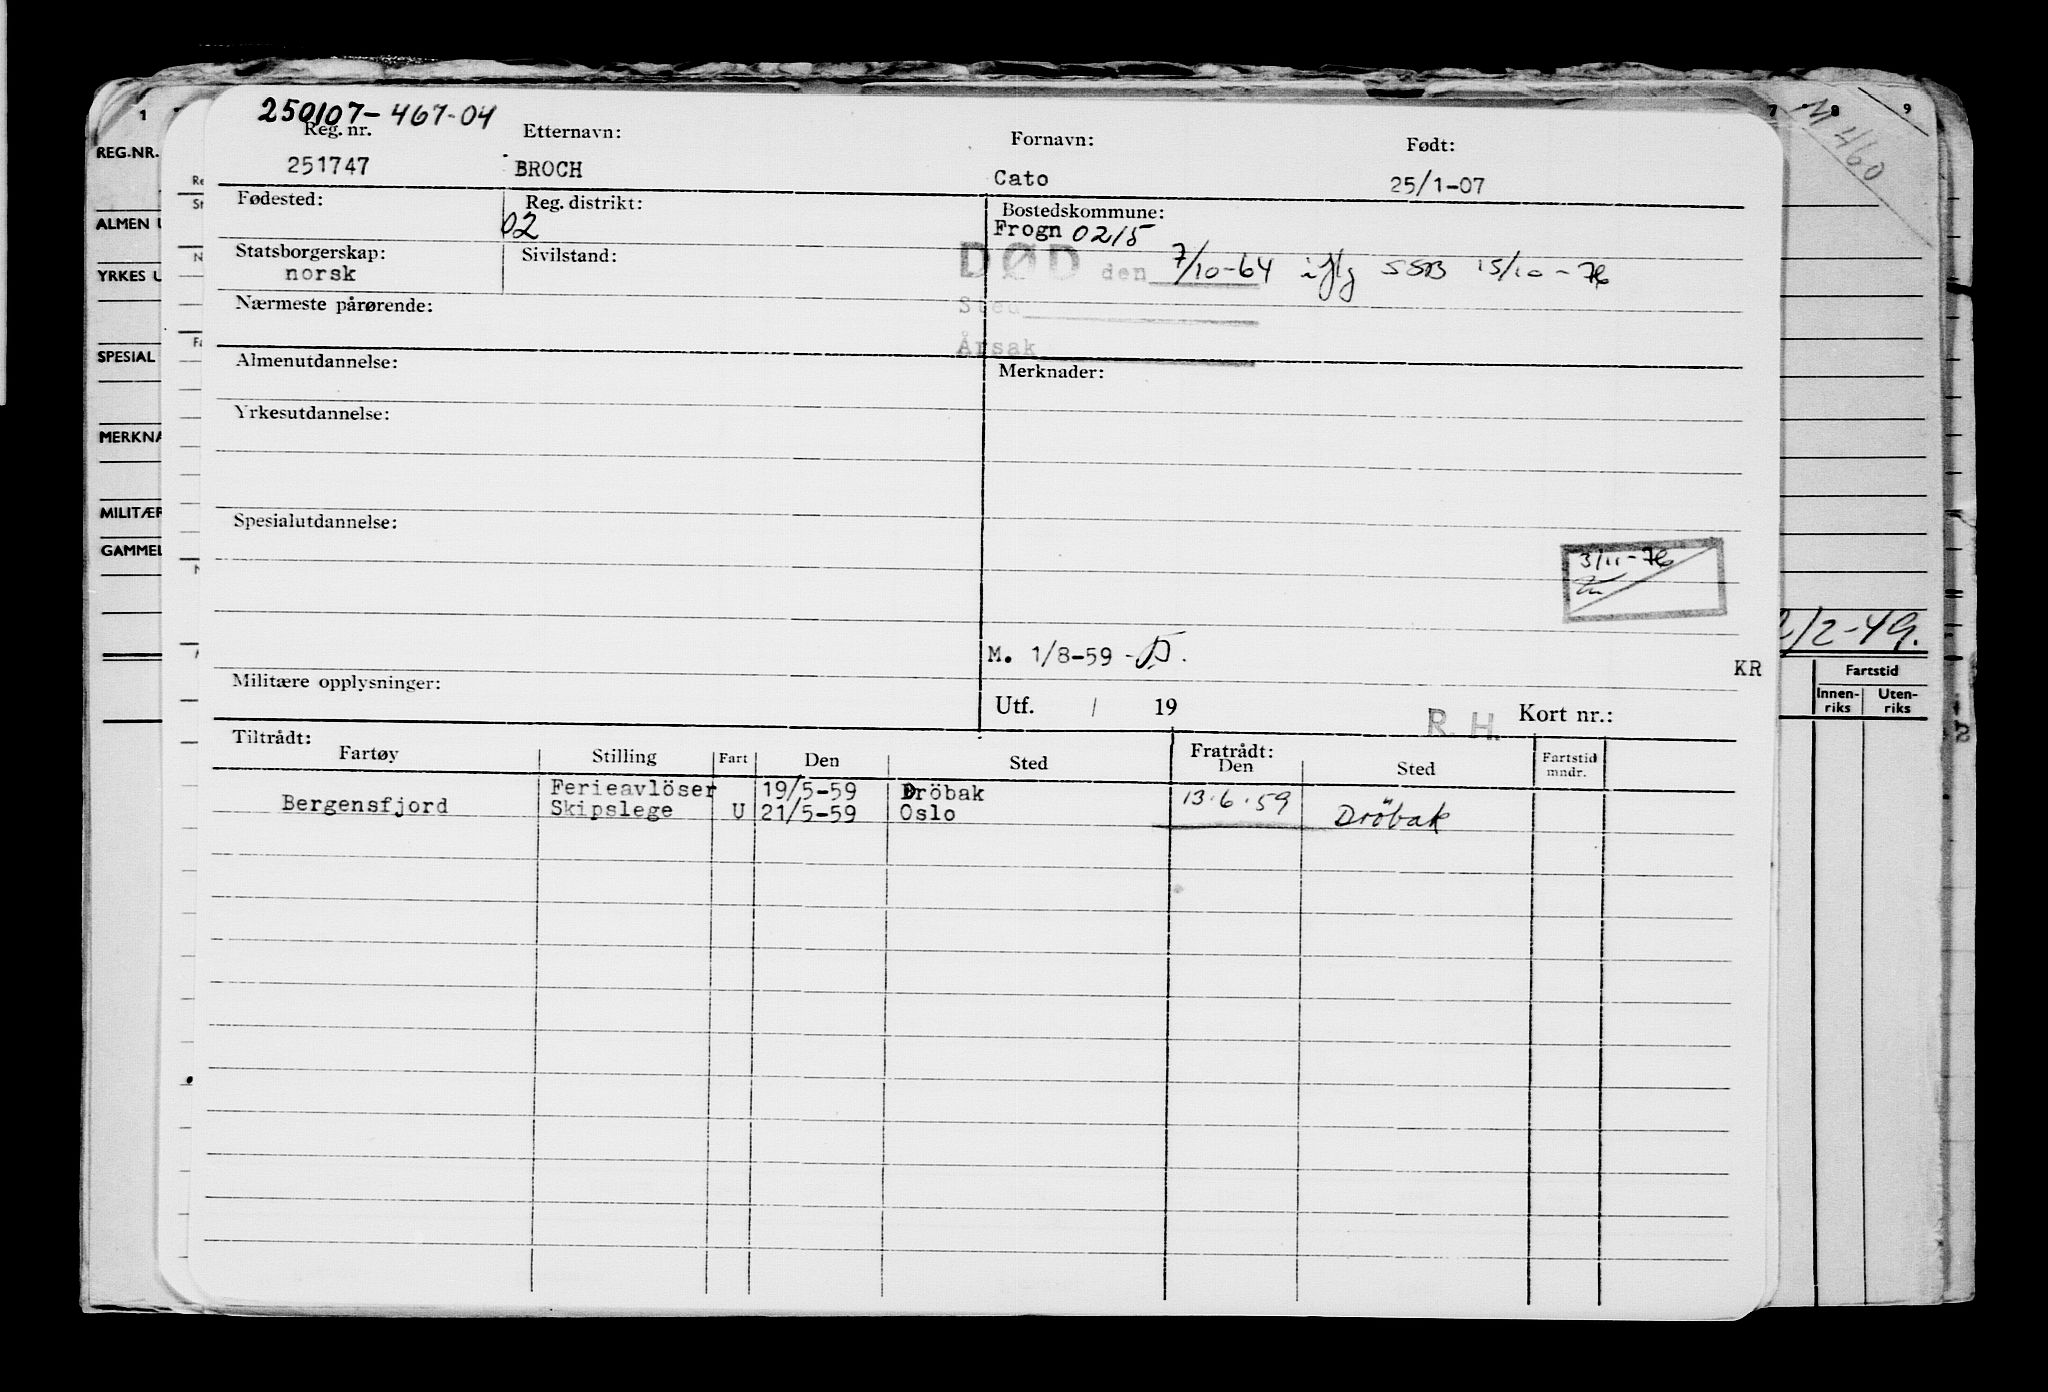 250107-467-04
Reg. nr. Etternavn: Fornavn: Født:
251747 BROCH Cato 25/1-07
Fødested: Reg. distrikt: Bostedskommune:
02 Frogn 0215
Statsborgerskap: Sivilstand: DØD den 7/10-64 iflg SSB 15/10-76
norsk
Nærmeste pårørende: Sted
Årsak
Almenutdannelse: Merknader:
Yrkesutdannelse:
Spesialutdannelse:
3/11-76
M. 1/8-59 -
KR
Militære opplysninger:
Utf. / 19 R. H. Kort nr.:
Tiltrådt: Fratrådt:
Fartøy Stilling Fart Den Sted Den Sted Fartstid mndr.
Ferieavlöser 19/5-59 Dröbak 13.6.59
Bergensfjord Skipslege U 21/5-59 Oslo Dröbak
1
REG.NR.
ALMEN U
YRKES U
SPESIAL
MERKNA
MILITÆR
GAMMEL
Re
St
N
Fa
7 8 9
M 460
2/2-49.
Fartstid
Innen-riks Uten-riks